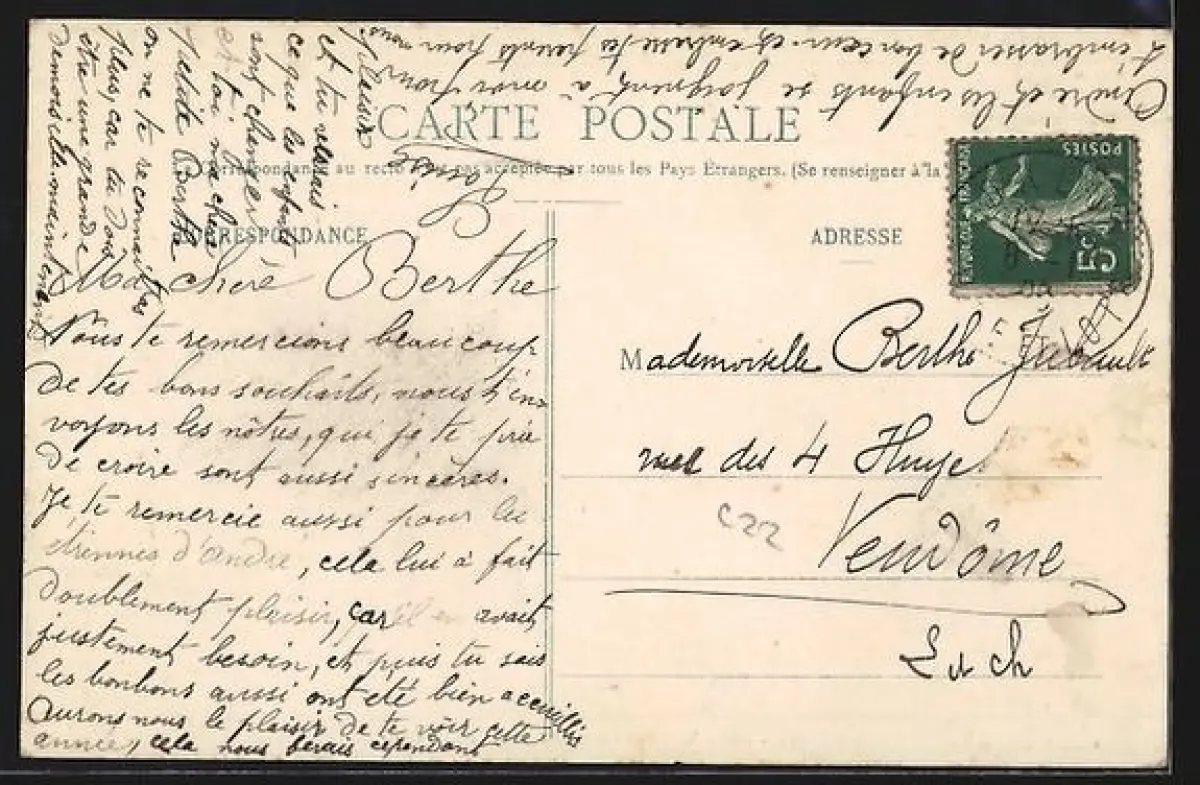 CARTE POSTALE
La Correspondance au recto n'est pas acceptée par tous les Pays Étrangers. (Se renseigner à la
CORRESPONDANCE
ADRESSE
Ma chère Berthe
Nous te remercions beaucoup
de tes bons souhaits, nous t'en-
voyons les nôtres, qui je te prie
de croire sont aussi sincères.
Je te remercie aussi pour les
étrennes d'André, cela lui a fait
doublement plaisir, car il en avait
justement besoin, et puis tu sais
les bonbons aussi ont été bien accueillis
Aurons nous le plaisir de te voir cette
année, cela nous ferais cependant
plaisir
et tu verrais
ce que les enfants
sont changer
et toi ma chère
petite Berthe
on ne te reconnaitras
plus, car tu dois
être une grande
demoiselle maintenant
André et les enfants se joignent à moi pour
t'embrasser de bon cœur et embrasse tes parents pour nous
Mademoiselle Berthe
rue des 4 Huyes
Vendôme
L et ch
POSTES
5c
C22